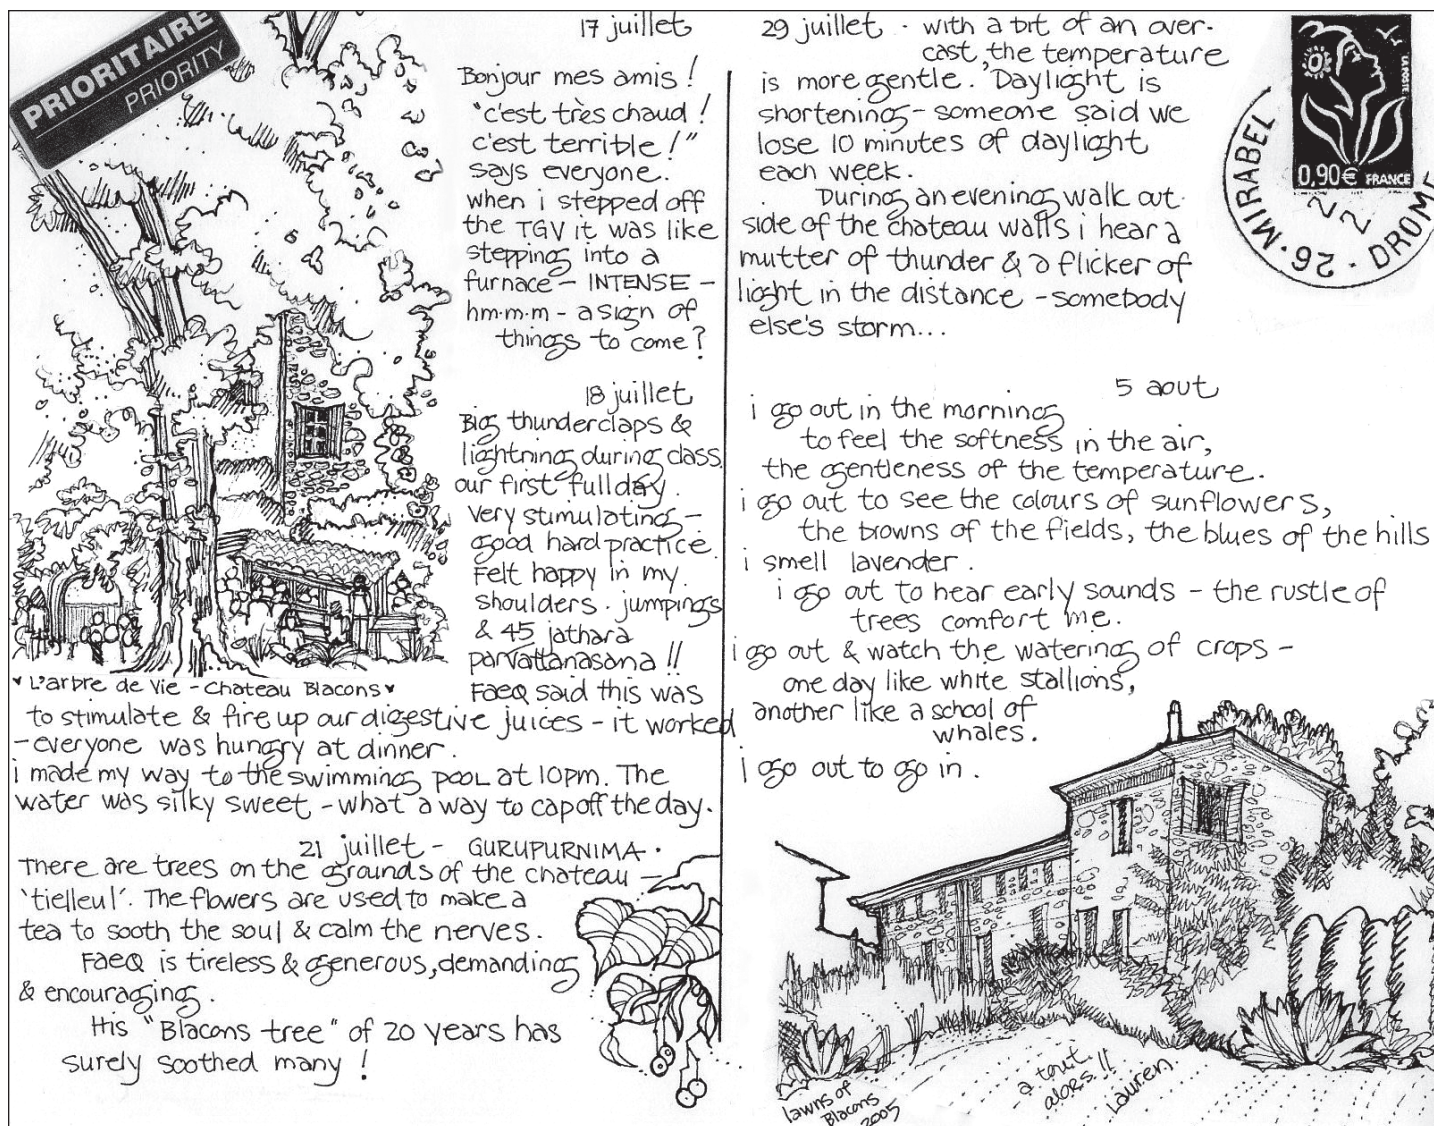 PRIORITAIRE
PRIORITY
17 juillet
Bonjour mes amis !
"c'est très chaud !
c'est terrible !"
says everyone.
when i stepped off
the TGV it was like
stepping into a
furnace - INTENSE -
hm.m.m - a sign of
things to come?
18 juillet
Big thunderclaps &
lightning during class
our first full day.
very stimulating -
good hard practice.
Felt happy in my
shoulders. jumpings
& 45 jathara
parvattanasana !!
FaeQ said this was
♥ L'arbre de Vie - Chateau Blacons ♥
to stimulate & fire up our digestive juices - it worked
- everyone was hungry at dinner.
i made my way to the swimming pool at 10pm. The
water was silky sweet - what a way to cap off the day.
21 juillet - GURUPURNIMA.
There are trees on the grounds of the chateau -
'tielleul'. The flowers are used to make a
tea to sooth the soul & calm the nerves.
FaeQ is tireless & generous, demanding
& encouraging.
His "Blacons tree" of 20 years has
surely soothed many !
29 juillet - with a bit of an over-
cast, the temperature
is more gentle. Daylight is
shortening - someone said we
lose 10 minutes of daylight
each week.
During an evening walk out-
side of the chateau walls i hear a
mutter of thunder & a flicker of
light in the distance - somebody
else's storm...
5 aout
i go out in the morning
to feel the softness in the air,
the gentleness of the temperature.
i go out to see the colours of sunflowers,
the browns of the fields, the blues of the hills
i smell lavender.
i go out to hear early sounds - the rustle of
trees comfort me.
i go out & watch the watering of crops -
one day like white stallions,
another like a school of
whales.
i go out to go in.
LA POSTE
0,90€ FRANCE
26 · MIRABEL · DROME
lawns of
Blacons
2005
- a tout
alors !!
Lauren